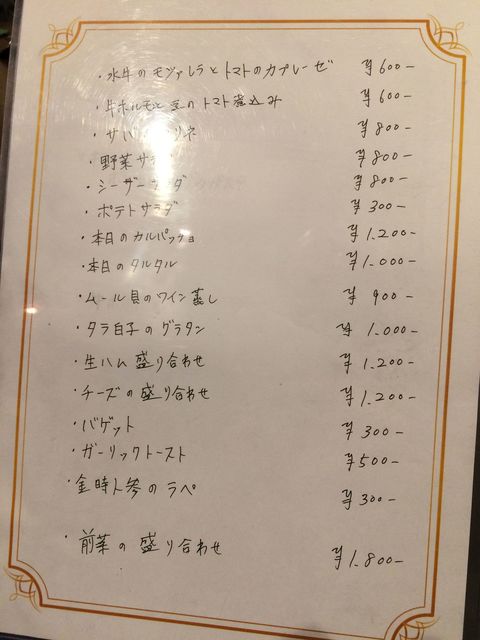 ・水牛のモッツァレラとトマトのカプレーゼ ¥600-
・牛ホルモンと豆のトマト煮込み ¥600-
・サバ リネ ¥800-
・野菜サラダ ¥800-
・シーザーサラダ ¥800-
・ポテトサラダ ¥300-
・本日のカルパッチョ ¥1.200-
・本日のタルタル ¥1.000-
・ムール貝のワイン蒸し ¥900-
・タラ白子のグラタン ¥1.000-
・生ハム盛り合わせ ¥1.200-
・チーズの盛り合わせ ¥1.200-
・バゲット ¥300-
・ガーリックトースト ¥500-
・金時人参のラペ ¥300-
・前菜の盛り合わせ ¥1.800-